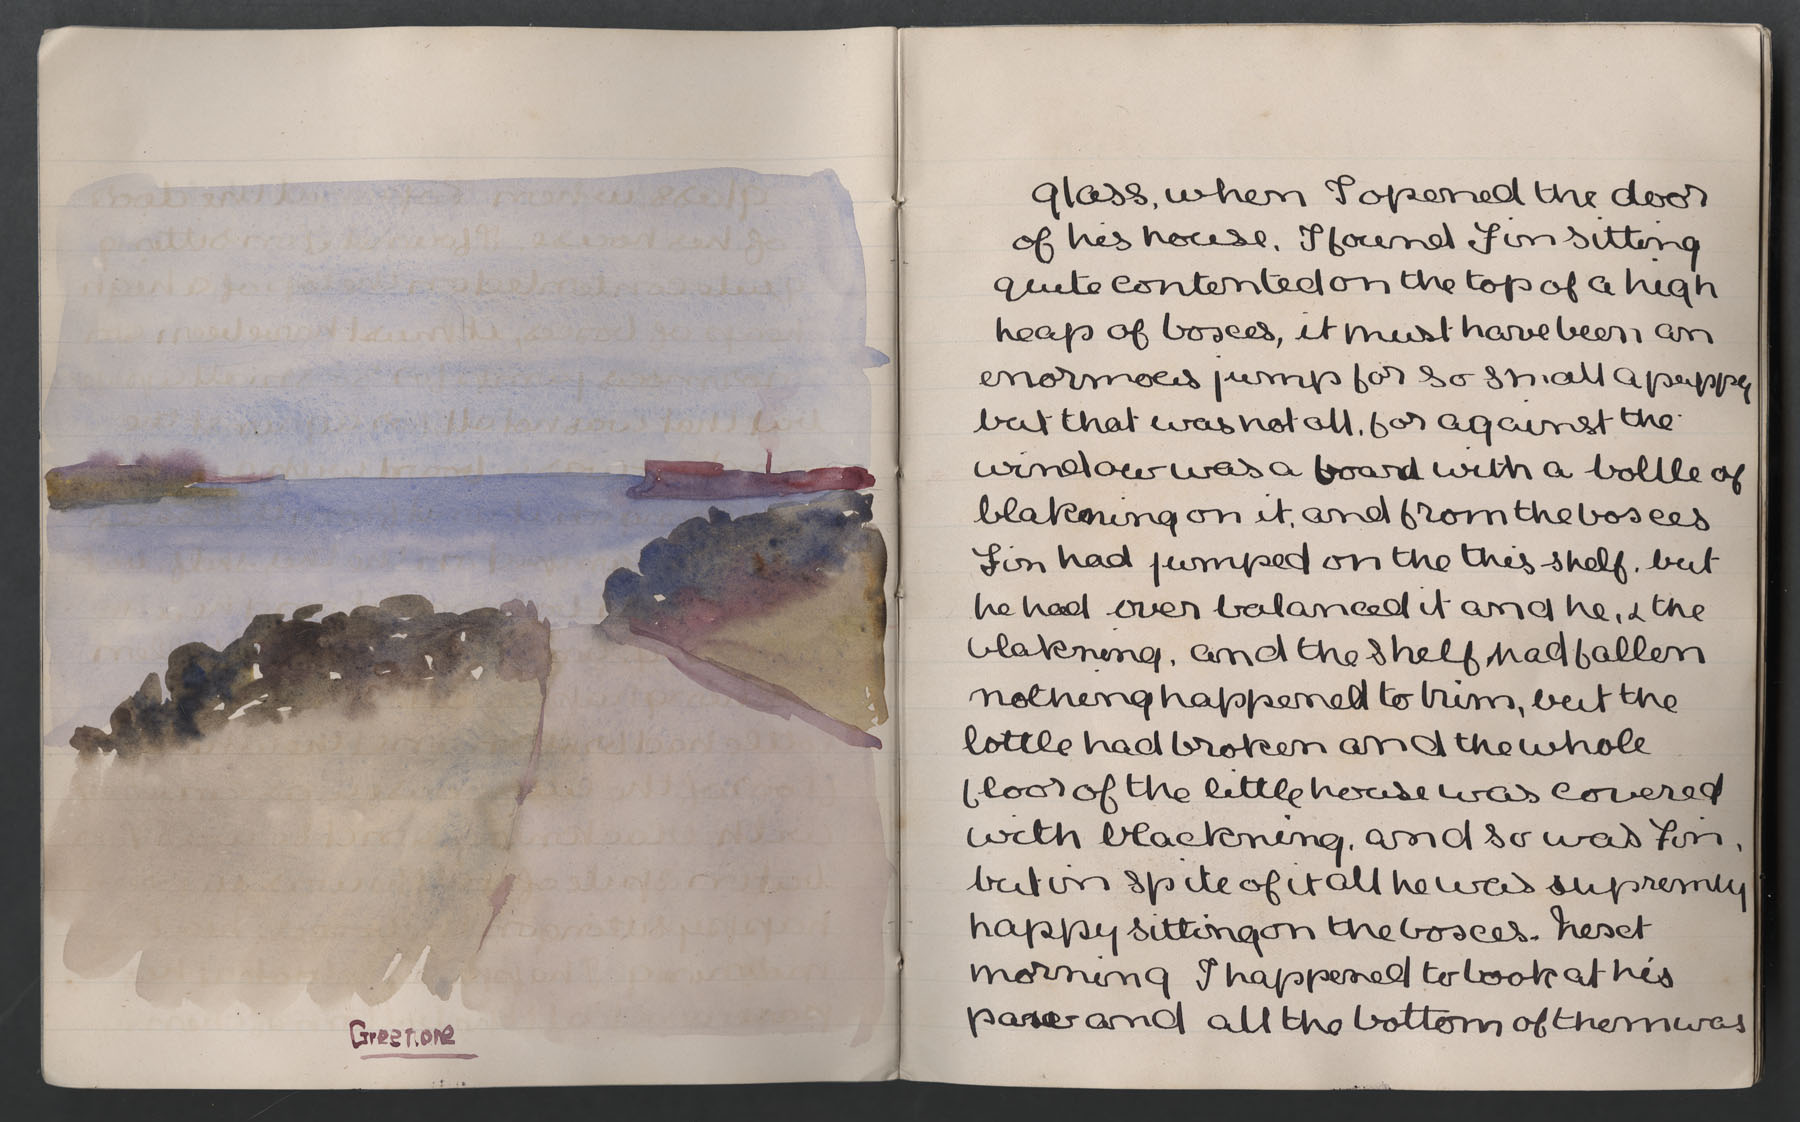 Greetone
glass, when I opened the door
of his house, I found Fin sitting
quite contented on the top of a high
heap of boxes, it must have been an
enormous jump for so small a puppy
but that was not all, for against the
window was a board with a bottle of
blakning on it, and from the boxes
Fin had jumped on the this shelf, but
he had over balanced it and he, & the
blakning, and the shelf, had fallen
nothing happened to him, but the
bottle had broken and the whole
floor of the little house was covered
with blackning, and so was Fin,
but in spite of it all he was supremly
happy sitting on the boxes. Next
morning I happened to look at his
and all the bottom of them was